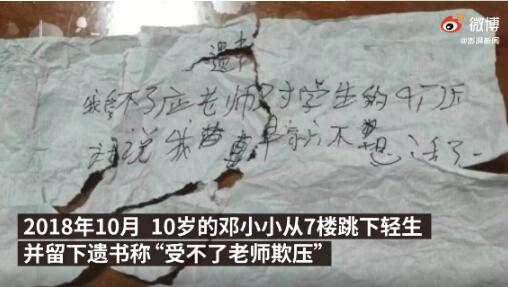 微博
@澎湃新闻
遗书
我受不了老师对学生的
说我早就不想活了
2018年10月 10岁的邓小小从7楼跳下轻生
并留下遗书称“受不了老师欺压”